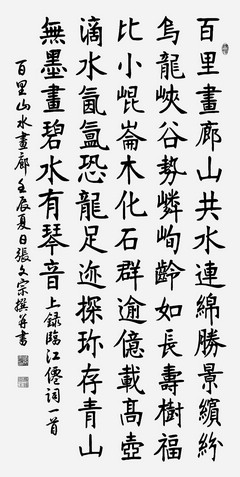 百里畫廊山共水連綿勝景繽紛
烏龍峽谷勢嶙峋齡如長壽樹福
比小崐崙木化石群逾億載高壺
滴水氤氲恐龍足迹探珎存青山
無墨畫碧水有琴音上録臨江僊詞一首
百里山水畫廊壬辰夏日張文宗撰并書